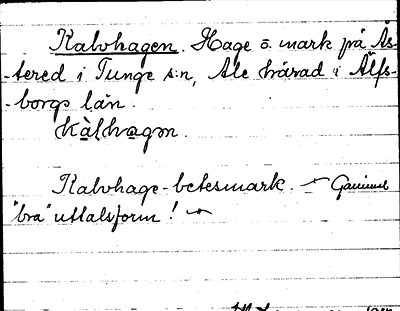 Kalvhagen. Hage o. mark på Ås-
-tered i Tunge s:n, Ale härad i Älfs-
-borgs län.
kàlhagən.
Kalvhage-betesmark. – Gammal
"bra" uttalsform!